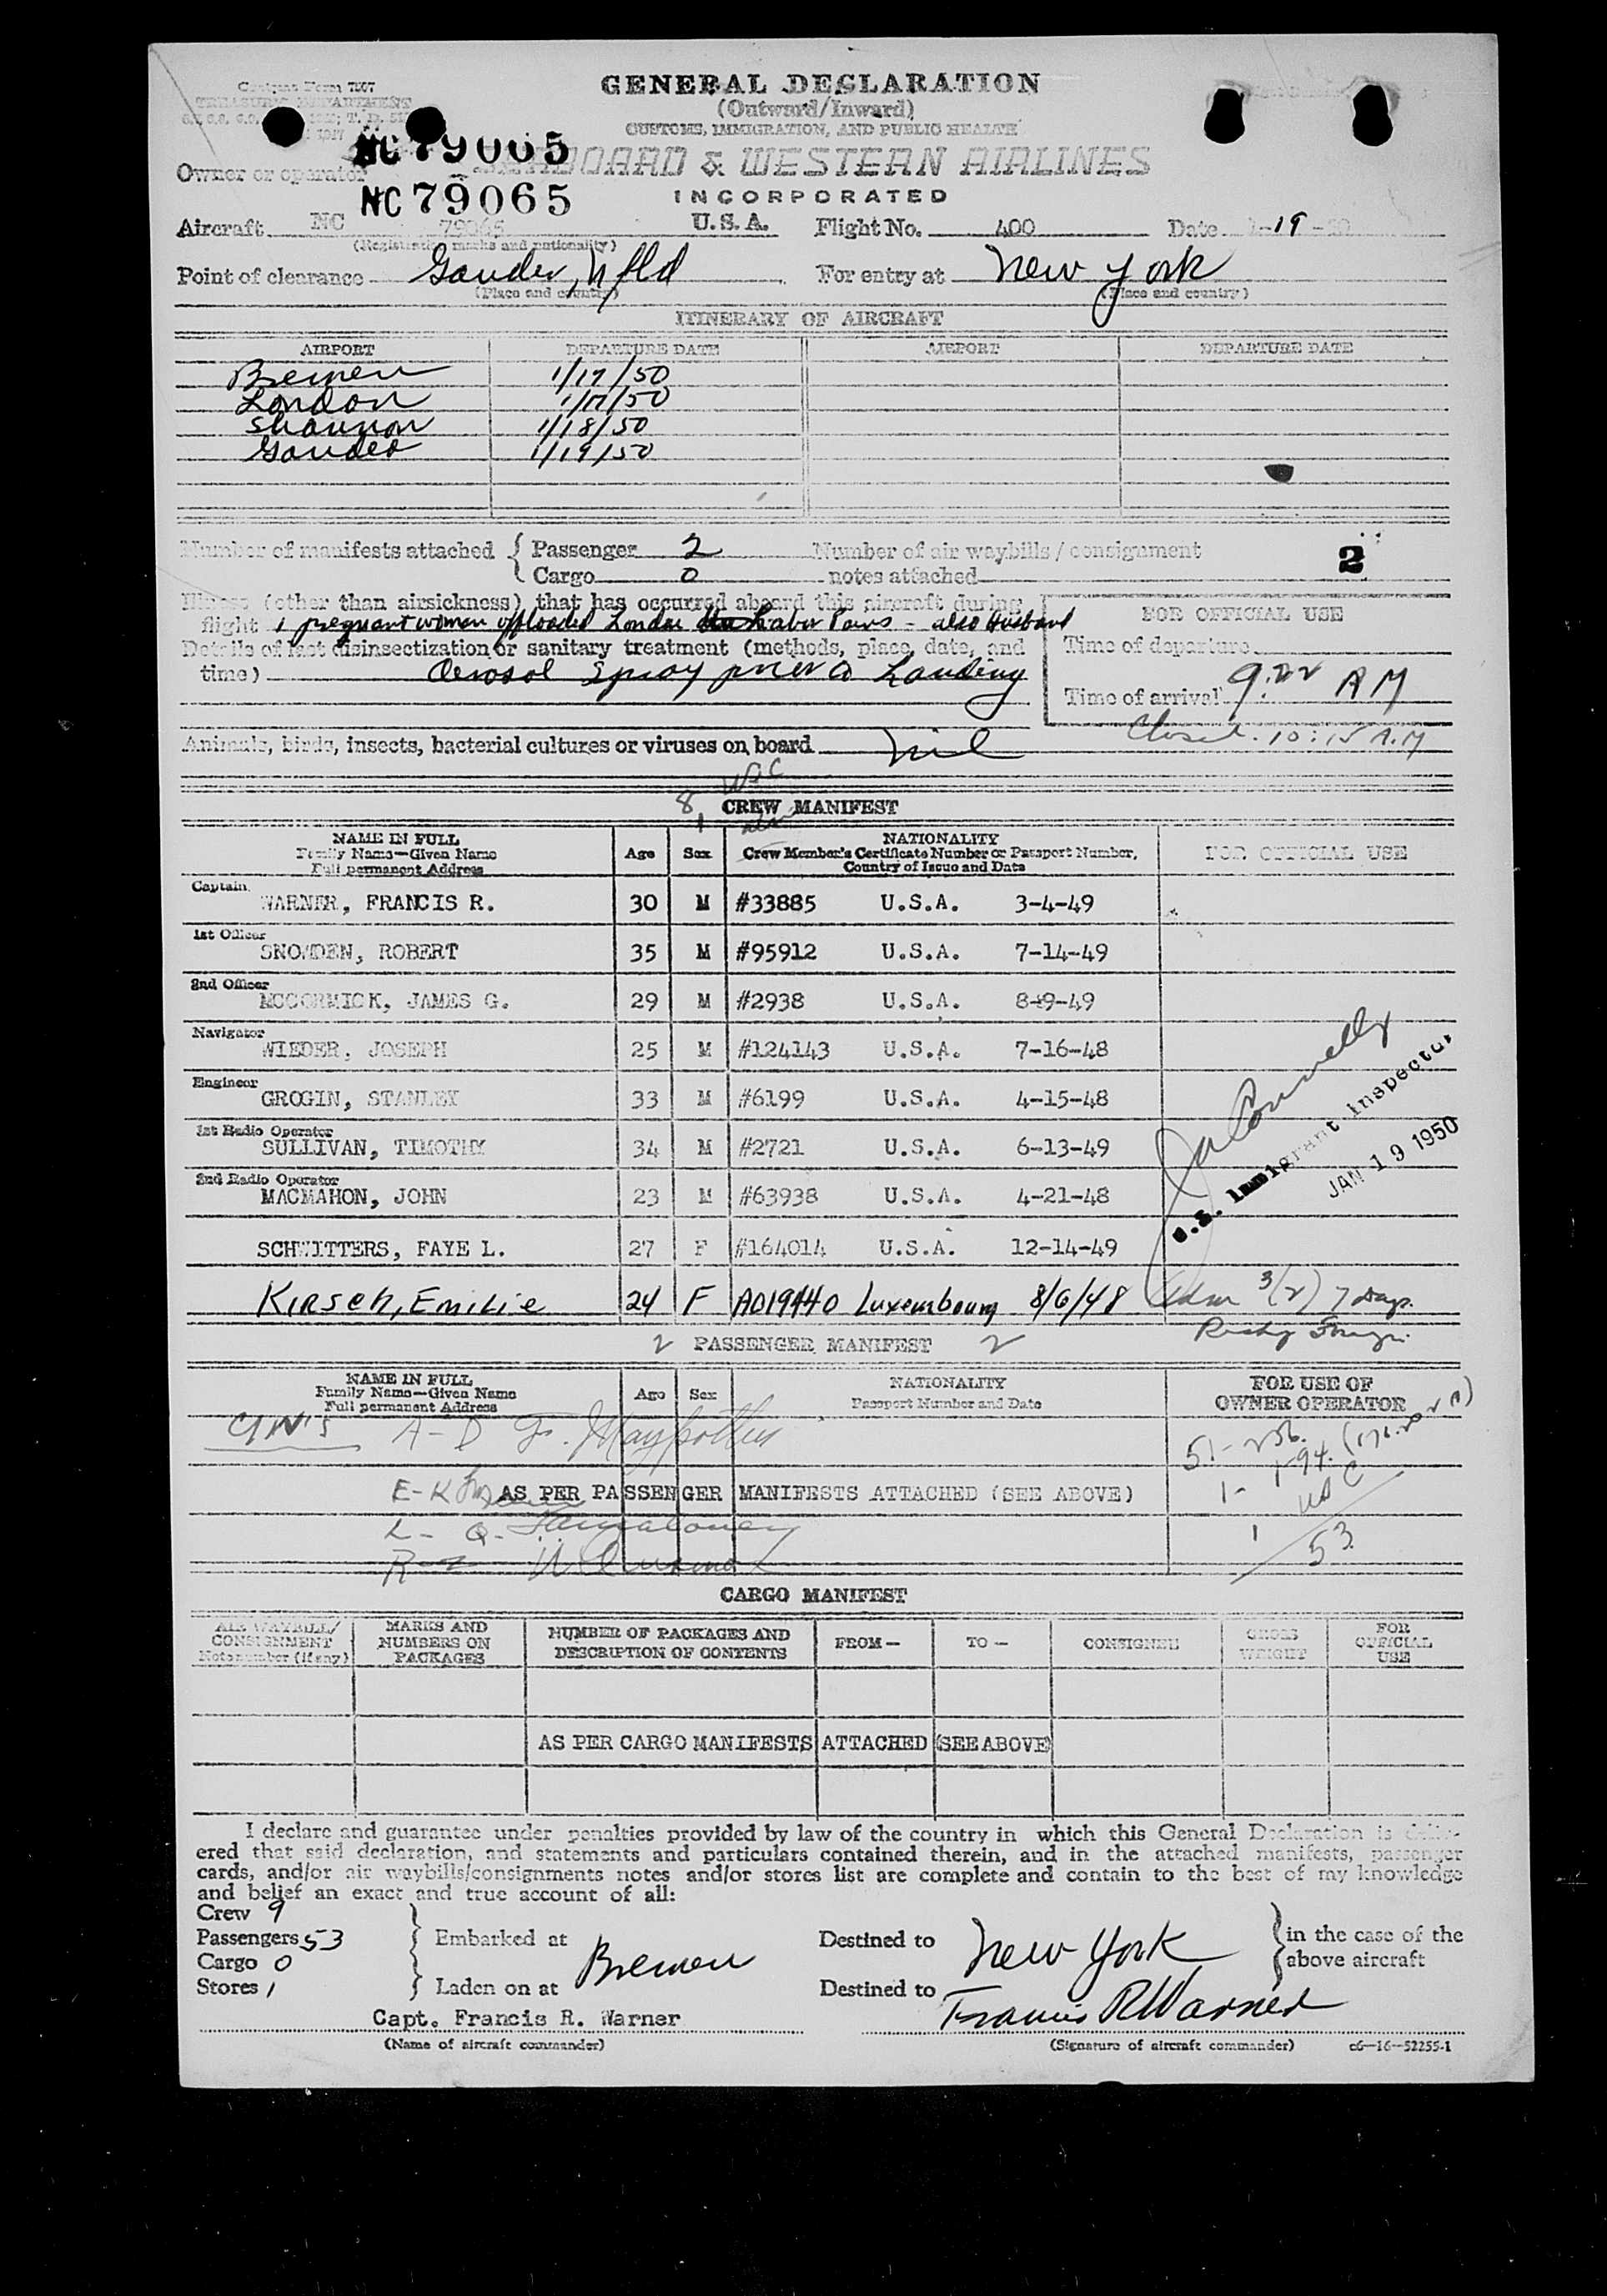 Customs Form 7507
TREASURY DEPARTMENT
GENERAL DECLARATION
(Outward/Inward)
CUSTOMS, IMMIGRATION, AND PUBLIC HEALTH
NC79065
Owner or operator SEABOARD & WESTERN AIRLINES
NC79065 INCORPORATED
Aircraft NC 79065 U.S.A. Flight No. 400 Date 1-19-50
(Registration marks and nationality)
Point of clearance Gander, Nfld For entry at New York
(Place and country) (Place and country)
ITINERARY OF AIRCRAFT
AIRPORT DEPARTURE DATE AIRPORT DEPARTURE DATE
Bremen 1/17/50
London 1/17/50
Shannon 1/18/50
Gander 1/19/50
Number of manifests attached { Passenger 2 Number of air waybills / consignment
Cargo 0 notes attached 2
Illness (other than airsickness) that has occurred aboard this aircraft during
flight 1 pregnant women offloaded London Labor Pains - also Husband
FOR OFFICIAL USE
Details of last disinsectization or sanitary treatment (methods, place, date, and
time) Aerosol Spray prior to Landing
Time of departure
Time of arrival 9:22 AM
Closed. 10:15 A.M
Animals, birds, insects, bacterial cultures or viruses on board nil
8 USC
1 CREW MANIFEST
NAME IN FULL Age Sex NATIONALITY FOR OFFICIAL USE
Family Name—Given Name Crew Member's Certificate Number or Passport Number,
Full permanent Address Country of Issue and Date
Captain
WARNER, FRANCIS R. 30 M #33885 U.S.A. 3-4-49
1st Officer
SNOWDEN, ROBERT 35 M #95912 U.S.A. 7-14-49
2nd Officer
MCCORMICK, JAMES G. 29 M #2938 U.S.A. 8-9-49
Navigator
WIEDER, JOSEPH 25 M #124143 U.S.A. 7-16-48
Engineer
GROGIN, STANLEY 33 M #6199 U.S.A. 4-15-48
1st Radio Operator
SULLIVAN, TIMOTHY 34 M #2721 U.S.A. 6-13-49
2nd Radio Operator
MACMAHON, JOHN 23 M #63938 U.S.A. 4-21-48
U.S. Immigrant Inspector
JAN 19 1950
SCHWITTERS, FAYE L. 27 F #164014 U.S.A. 12-14-49
Kirsch, Emilie 24 F A019440 Luxembourg 8/6/48 Adm 3(2) 7 days.
2 PASSENGER MANIFEST 2
NAME IN FULL Age Sex NATIONALITY FOR USE OF
Family Name—Given Name Passport Number and Date OWNER OPERATOR
Full permanent Address
A-D
E-K AS PER PASSENGER MANIFESTS ATTACHED (SEE ABOVE)
1- USC
L- Q-
1
53
CARGO MANIFEST
AIR WAYBILL/ CONSIGNMENT Note number (if any) MARKS AND NUMBERS ON PACKAGES NUMBER OF PACKAGES AND DESCRIPTION OF CONTENTS FROM— TO— CONSIGNEE GROSS WEIGHT FOR OFFICIAL USE
AS PER CARGO MANIFESTS ATTACHED (SEE ABOVE)
I declare and guarantee under penalties provided by law of the country in which this General Declaration is deliv-
ered that said declaration, and statements and particulars contained therein, and in the attached manifests, passenger
cards, and/or air waybills/consignments notes and/or stores list are complete and contain to the best of my knowledge
and belief an exact and true account of all:
Crew 9
Passengers 53 Embarked at Destined to in the case of the
Cargo 0 Bremen New York above aircraft
Stores 1 Laden on at Destined to
Capt. Francis R. Warner Francis R Warner
(Name of aircraft commander) (Signature of aircraft commander) c6—16—52255-1